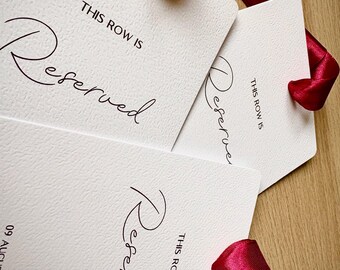 THIS ROW IS
Reserved
THIS ROW IS
Reserved
THIS ROW IS
Reserved
09 AUGU